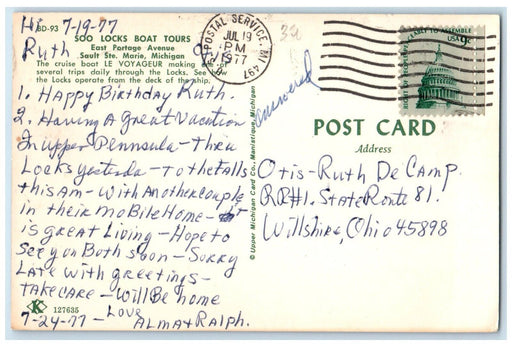 BD-93
Hi 7-19-77
SOO LOCKS BOAT TOURS
Ruth
East Portage Avenue
Sault Ste. Marie, Michigan
The cruise boat LE VOYAGEUR making one of
several trips daily through the Locks. See how
the Locks operate from the deck of the ship.
1. Happy Birthday Ruth.
2. Having A Great Vacation
In upper Peninsula - Thru
Locks yesterday - To the Falls
this AM - With Another couple
in their Mobile Home -
is great Living - Hope to
See you Both soon - Sorry
Late with greetings -
TAKE CARE - Will Be home
7-24-77 - Love
ALMA + Ralph.
K 127635
© Upper Michigan Card Co., Manistique, Michigan
POSTAL SERVICE, MI 497
JUL 19
PM
1977
32
answered
USA 9c
POST CARD
Address
Otis - Ruth De Camp
RR#1. State Route 81.
Willshire, Ohio 45898